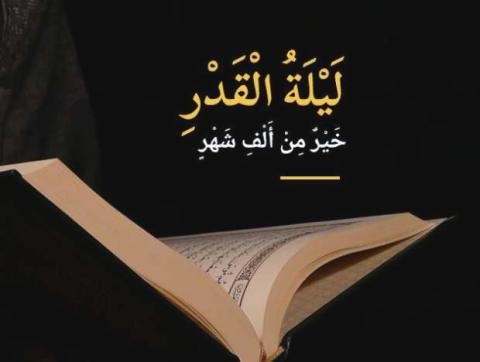 لَيْلَةُ الْقَدْرِ
خَيْرٌ مِنْ أَلْفِ شَهْرٍ